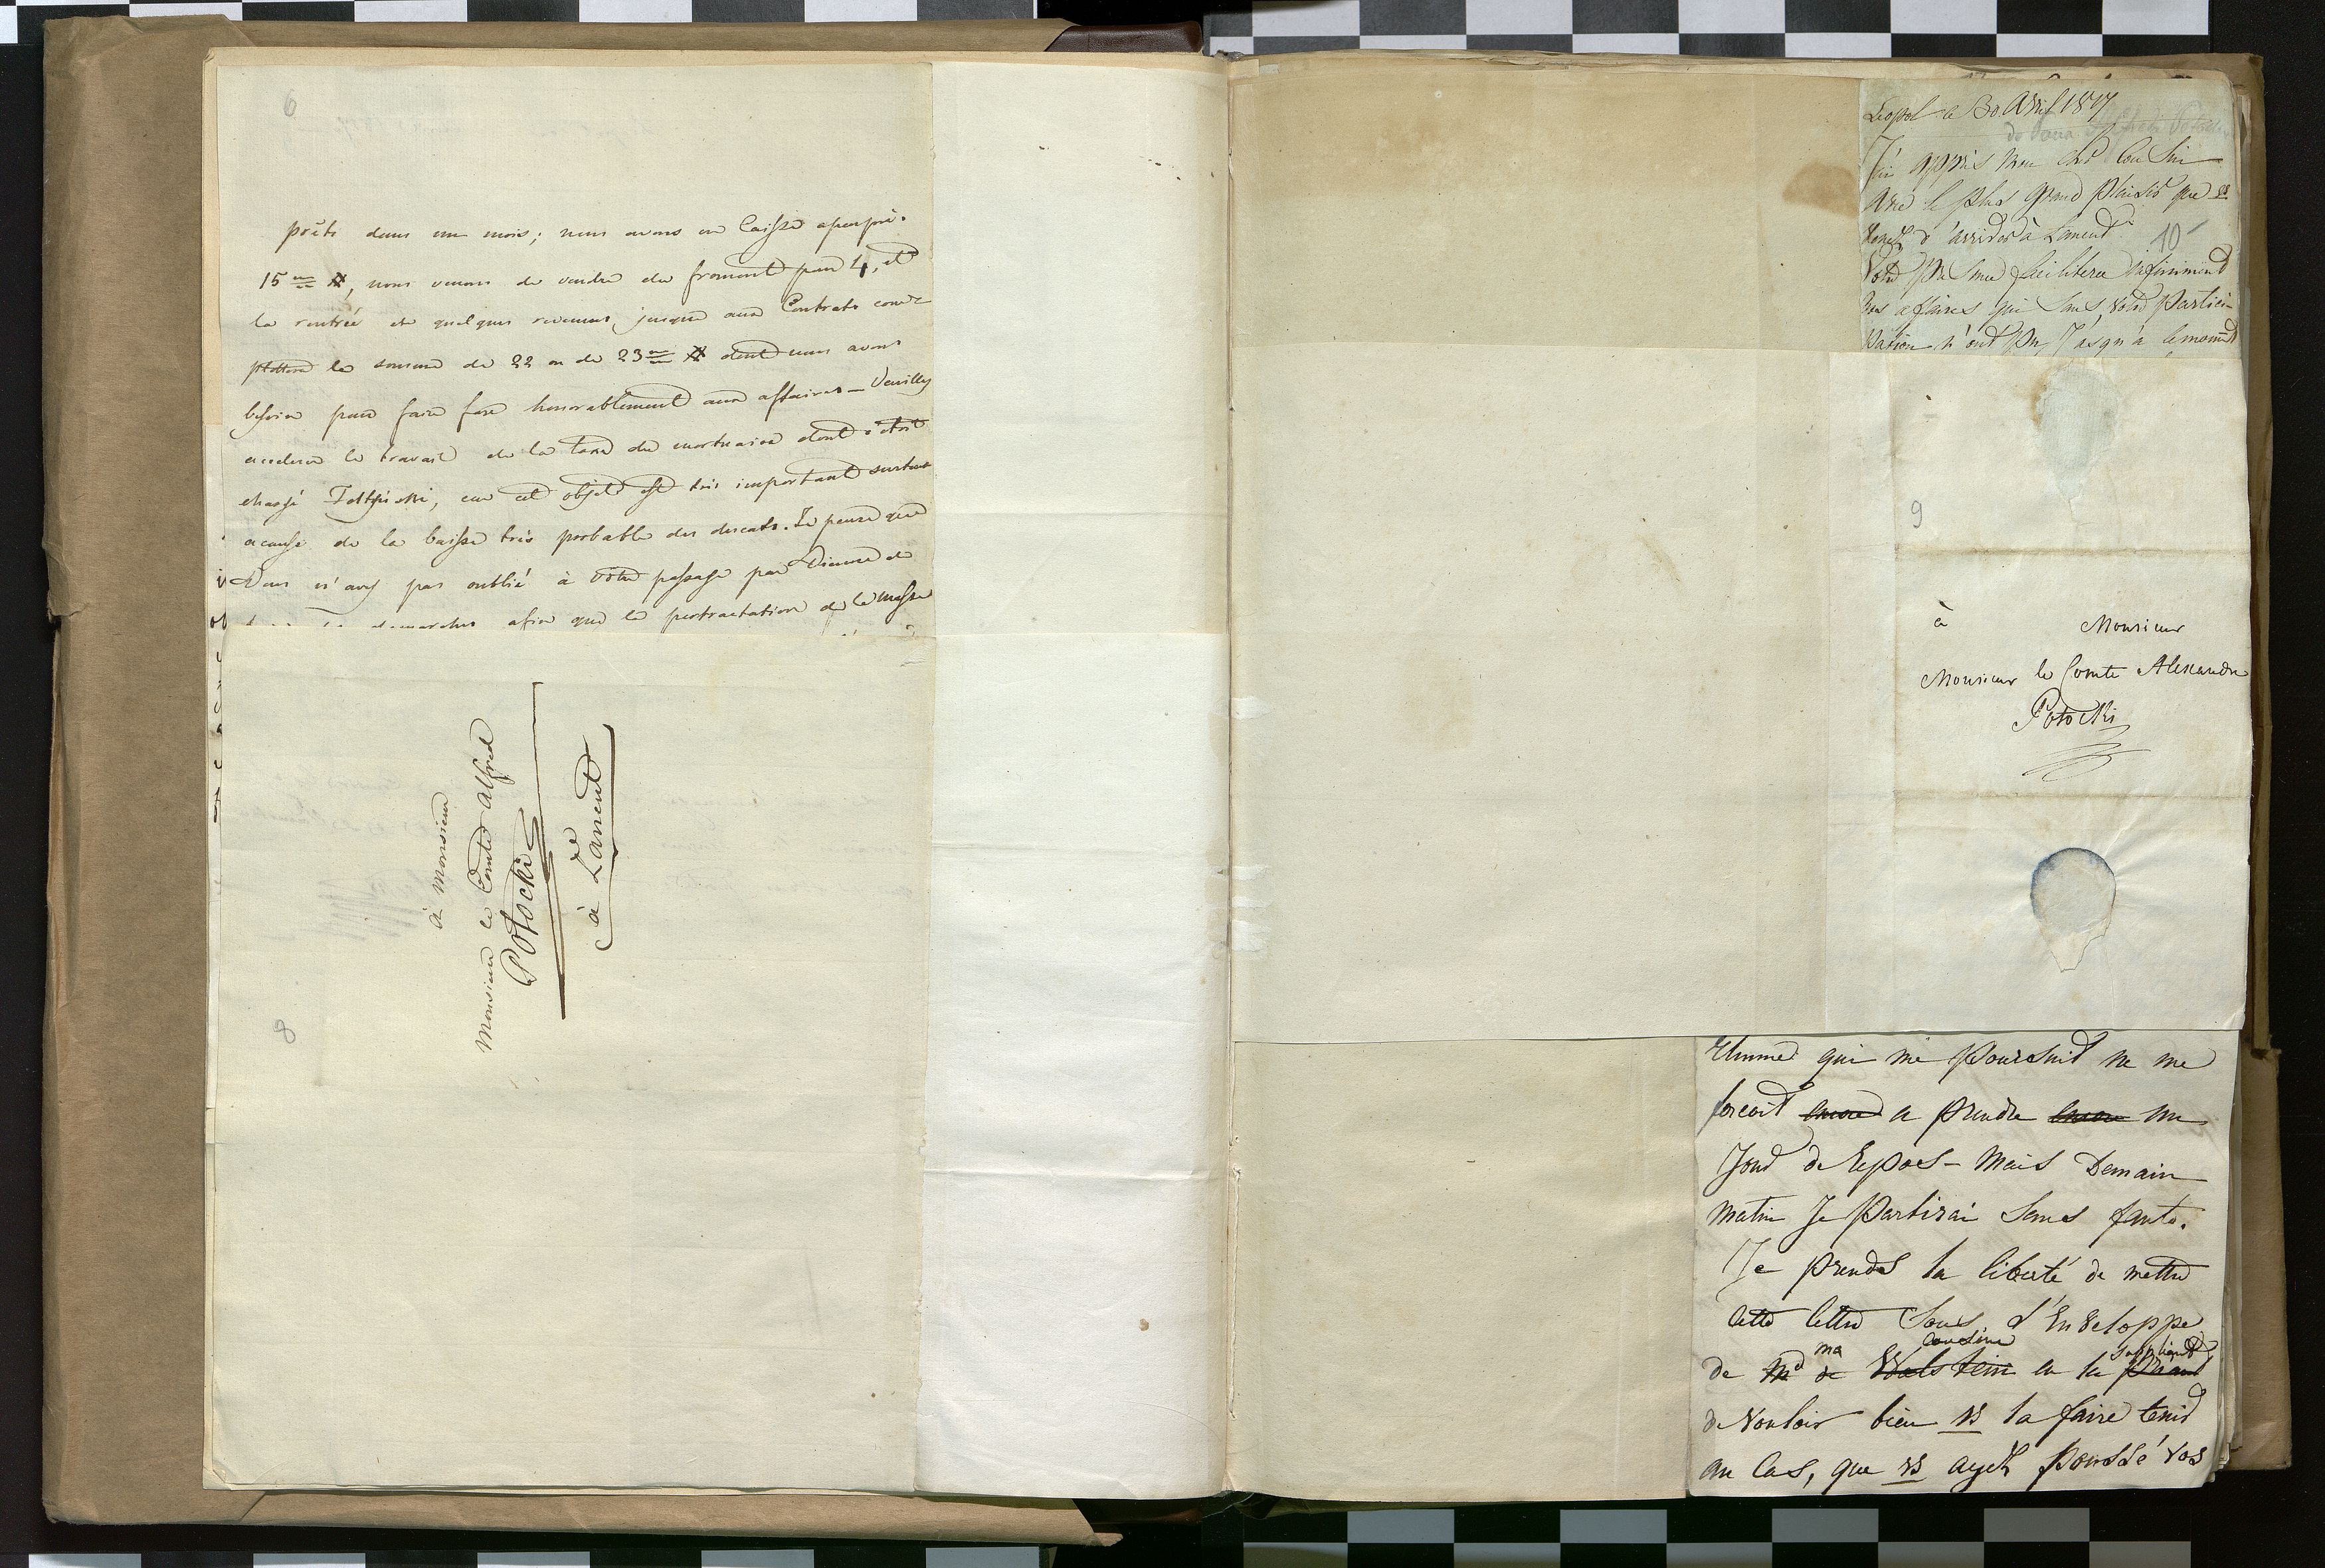 6
prêts dans un mois; nous avons en Caisse apeuprè.
15 m #, nous venons de vendre du froment pour 4, et
la rentrée de quelques revenus, jusqu'aux Contrats
la somme de 22 ou de 23 m # dont nous avons
besoin pour faire face honorablement aux affaires – Veuillez
le travail de la taxe du mortuaire dont s'étoit
chargé car cet objet est très important surtout
acause de la baisse très probable des ducats. Je pense que
Vous n'avez pas oublié à votre passage par Vienne de
demarches afin que la pertractation de la masse
à Monsieur
Monsieur le Comte Alfred
Potocki
à Lancut
8
Leopol le 30 Avril 1817
J'ai appris mon cher Cousin
avec le plus grand plaisir que vs
venez d'arriver à Lancut
10
Votre facilitera infiniment
nos affaires qui sans votre partici-
pation n'ont pu jusqu'à le moment
9
à Monsieur
Monsieur le Comte Alexandre
Potocki
rhume qui me poursuit ne me
forcoit encore a prendre encore un
Jour de Repos – Mais Demain
matin Je Partirai Sans faute.
Je prends la liberté de mettre
cette lettre Sous l'Enveloppe
ma Cousine suppliant
de Md de Walstein en la priant
de Vouloir bien vs la faire tenir
au Cas, que vs ayez poussé vos